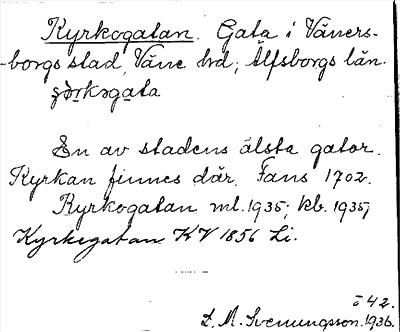 Kyrkogatan. Gata i Väners-
-borgs stad, Väne hd; Älfsborgs län.
En av stadens älsta gator.
Kyrkan finnes där. Fans 1702.
Kyrkogatan ml. 1935; kb. 1935;
Kyrkogatan KV 1856 Li.
42.
L. M. Svenungsson. 1936.